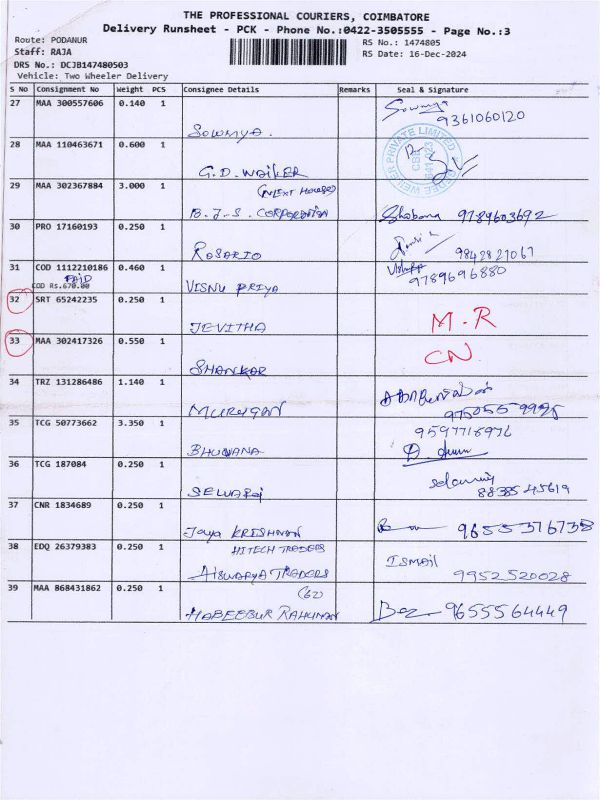 THE PROFESSIONAL COURIERS, COIMBATORE
Delivery Runsheet - PCK - Phone No.:0422-3505555 - Page No.:3
Route: PODANUR
RS No.: 1474805
Staff: RAJA
RS Date: 16-Dec-2024
DRS No.: DCJB147480503
Vehicle: Two Wheeler Delivery
S No Consignment No Weight PCS Consignee Details Remarks Seal & Signature
27 MAA 300557606 0.140 1 Sowmya
9361060120
SOWMYA.
28 MAA 110463671 0.600 1
G.D. WEILER
29 MAA 302367884 3.000 1 (NEXT HOUSE)
B.J.S. CORPORATION Shobana 9789603692
30 PRO 17160193 0.250 1
ROSARIO 9842827067
31 COD 1112210186 0.460 1 9789696880
PAID
COD Rs.670.00 VISNU PRIYA
32 SRT 65242235 0.250 1 M.R
JEVITHA
33 MAA 302417326 0.550 1 CN
SHANKAR
34 TRZ 131286486 1.140 1
MURUGAN
35 TCG 50773662 3.350 1 9597718976
BHUVANA
36 TCG 187084 0.250 1
SELVARAJ 8838545619
37 CNR 1834689 0.250 1
Jaya KRISHNAN 9655376738
38 EDQ 26379383 0.250 1 HITECH TRADERS ISMAIL
AISWARYA TRADERS 9952520028
39 MAA 868431862 0.250 1 (62)
HABEEBUR RAHUMAN 9655564449